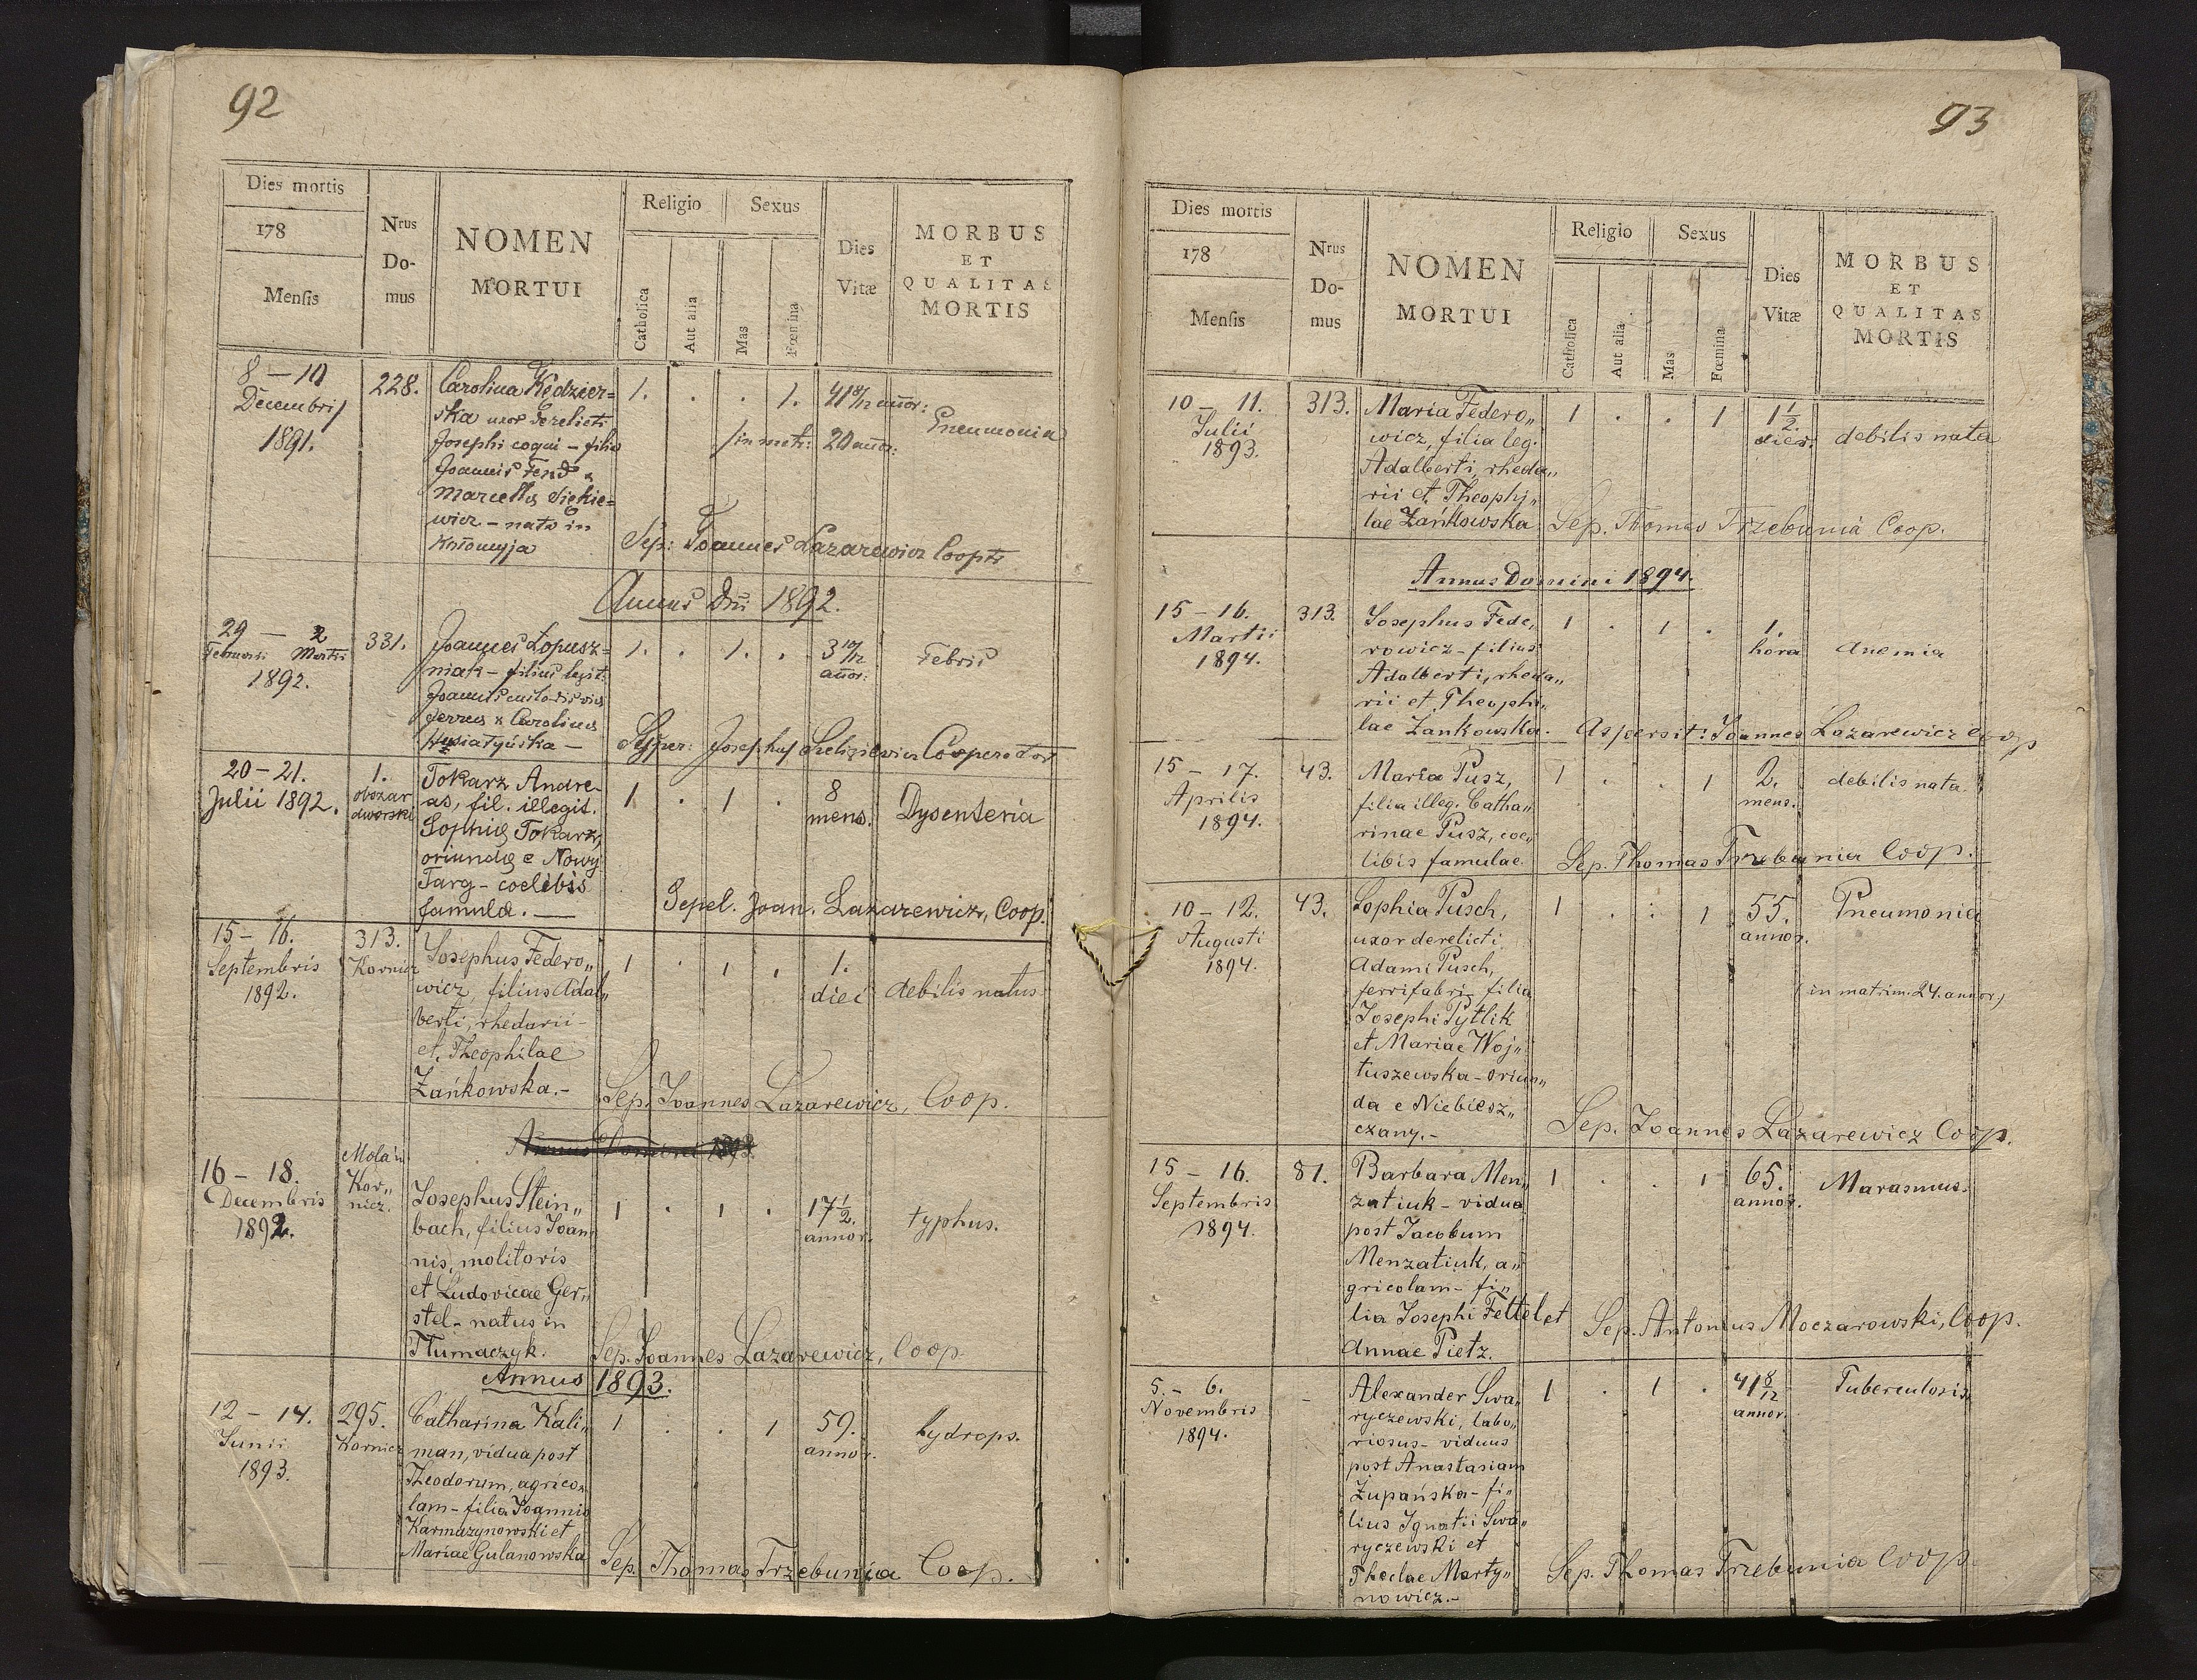 92
Dies mortis
178
Mensis
Nrus
Do-
mus
NOMEN
MORTUI
Religio
Sexus
Catholica
Aut alia
Mas
Fœmina
Dies
Vitæ
MORBUS
ET
QUALITAS
MORTIS
8 – 10
Decembris
1891.
228.
Carolina Kędzier=
ska uxor derelicti
Josephi coqui – filia
Joannis Fend &
Marcellæ Siekie=
wicz – nata in
Kołomyja
1. . . 1.
41 8/12 annor:
in matr: 20 annor:
Pneumonia
Sep: Joannes Lazarewicz Coopr
Annus Dni 1892.
29 – 2
Februarii Martii
1892.
331.
Joannes Łopusz=
niak – filius legit:
Joannis custodis viæ
ferreæ & Carolinæ
Husiatyńska –
1. . 1. .
3 10/12
annor:
Febris
Josephus Cooperator
20 – 21.
Julii 1892.
1.
obszar
dworski
Tokarz Andre-
as, fil. illegit.
Sophiæ Tokarz,
oriundæ e Nowy
Targ – coelibis
famulæ. —
1 . 1 .
8
mens.
Dysenteria
Sepel. Joan. Lazarewicz, Coop.
15 – 16.
Septembris
1892.
313.
Kornicz
Josephus Federo„
wicz, filius Adal„
berti, rhedarii –
et Theophilae
Żańkowska.-
1 . 1 .
1.
diei
debilis natus
Sep. Joannes Lazarewicz, Coop.
Annus Domini 1893.
16 – 18.
Decembris
1892.
Kor„
nicz.
Josephus Stein„
bach, filius Joan„
nis, molitoris
et Ludovicae Ger„
stel – natus in
Tłumaczyk.
1 . 1 .
17 1/2.
annor.
typhus.
Sep. Joannes Lazarewicz, Coop.
Annus 1893.
12 – 14.
Junii
1893.
295.
Kornicz
Catharina Kali„
man, vidua post
Theodorum, agrico„
lam – filia Joannis
Karmazynowski et
Mariae Gulanowska
1 . . 1
59.
annor.
hydrops.
Sep. Thomas Trzebunia Coop.
93
Dies mortis
178
Mensis
Nrus
Do-
mus
NOMEN
MORTUI
Religio
Sexus
Catholica
Aut alia
Mas
Fœmina
Dies
Vitæ
MORBUS
ET
QUALITAS
MORTIS
10 – 11.
Julii
1893.
313.
Maria Federo„
wicz, filia leg.
Adalberti, rheda„
rii et Theophi„
lae Żańkowska
1 . . 1
1 1/2.
dier.
debilis nata
Sep. Thomas Trzebunia Coop.
Annus Domini 1894.
15 – 16.
Martii
1894.
313.
Josephus Fede„
rowicz – filius
Adalberti, rheda„
rii et Theophi„
lae Żankowska.
1 . 1 .
1.
hora
anemia
Aspersit: Joannes Lazarewicz Coop
15 – 17.
Aprilis
1894.
43.
Maria Pusz,
filia illeg. Catha„
rinae Pusz, coe„
libis famulae.
1 . . 1
2.
mens.
debilis nata.
Sep. Thomas Trzebunia Coop.
10 – 12.
Augusti
1894.
43.
Sophia Pusch,
uxor derelicti
Adami Pusch,
ferrifabri, filia
Josephi Pytlik
et Mariae Woj„
tuszewska – oriun„
da e Niebiesz„
czany.-
1 . . 1
55.
annor.
Pneumonia
(in matrim. 24. annor.)
Sep. Joannes Lazarewicz Coop.
15 – 16.
Septembris
1894.
81.
Barbara Men„
zatiuk – vidua
post Jacobum
Menzatiuk, a„
gricolam – fi„
lia Josephi Fettel et
Annae Pietz.
1 . . 1
65.
annor.
Marasmus.
Sep. Antonius Moczarowski, Coop.
5. – 6.
Novembris
1894.
–
Alexander Swa„
ryczewski, labo„
riosus – viduus
post Anastasiam
Żupańska – fi„
lius Ignatii Swa„
ryczewski et
Theclae Marty„
nowicz.-
1 . 1 .
41 8/12
annor.
Tuberculosis
Sep. Thomas Trzebunia Coop.